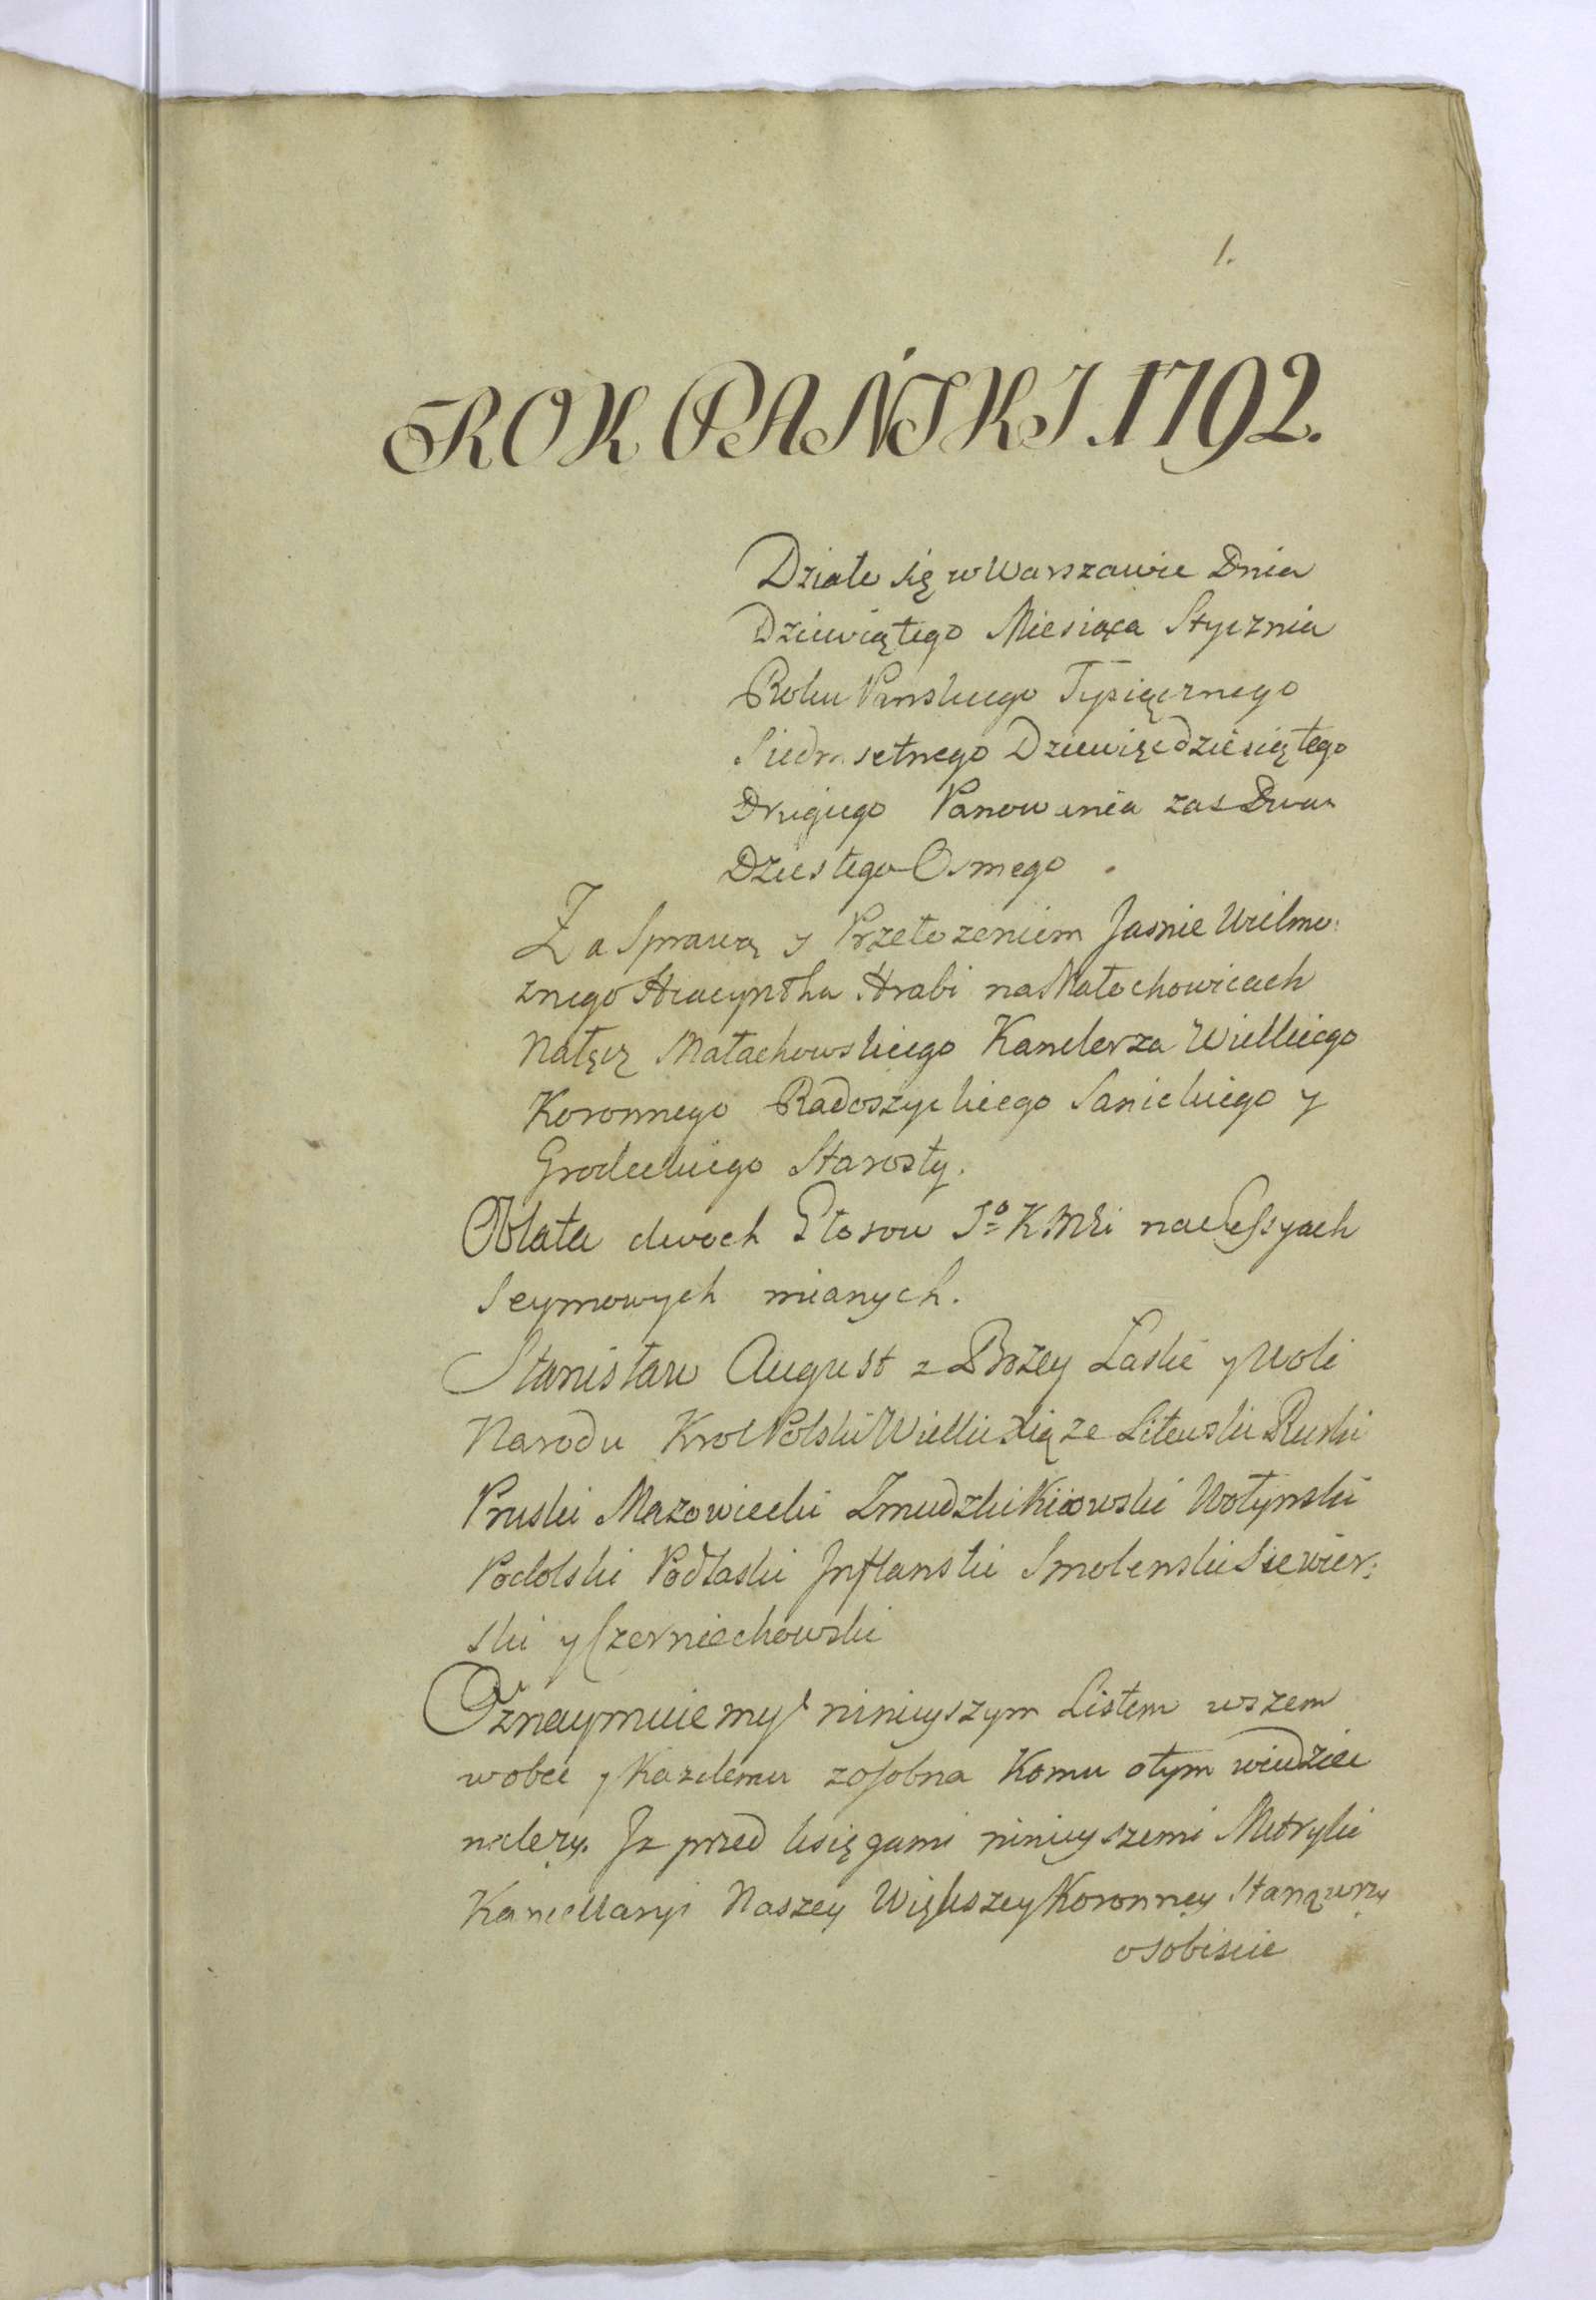 1.
ROK PAŃSKI. 1792.
Działo się w Warszawie Dnia
Dziewiątego Miesiąca Stycznia
Roku Panskiego Tysiącznego
Siedmsetnego Dziewięcdziesiątego
Drugiego Panowania zas Dwu
Dziestego Osmego.
Za Sprawą y Przełożeniem Jasnie Wielmo:
znego Hiacyntha Hrabi na Małochowicach
Nałęcz Małachowskiego Kanclerza Wielkiego
Koronnego Radoszyckiego Sanickiego y
Grodeckiego Starosty.
Oblata dwoch Głosow Jº K Mci na Sessyach
Seymowych mianych.
Stanisław August z Bożey Łaski y Woli
Narodu Krol Polski Wielki Xiąze Litewski Ruski
Pruski Mazowiecki Zmudzki Kiiowski Wołynski
Podolski Podlaski Inflanski Smolenski Siewier:
ski y Czerniechowski
Oznaymuiemy ninieyszym Listem wszem
wobec y każdemu zosobna komu otym wiedziec
należy. Iż przed księgami ninieyszemi Metryki
Kancellaryi Naszey Większey Koronney Stanąwszy
osobiscie